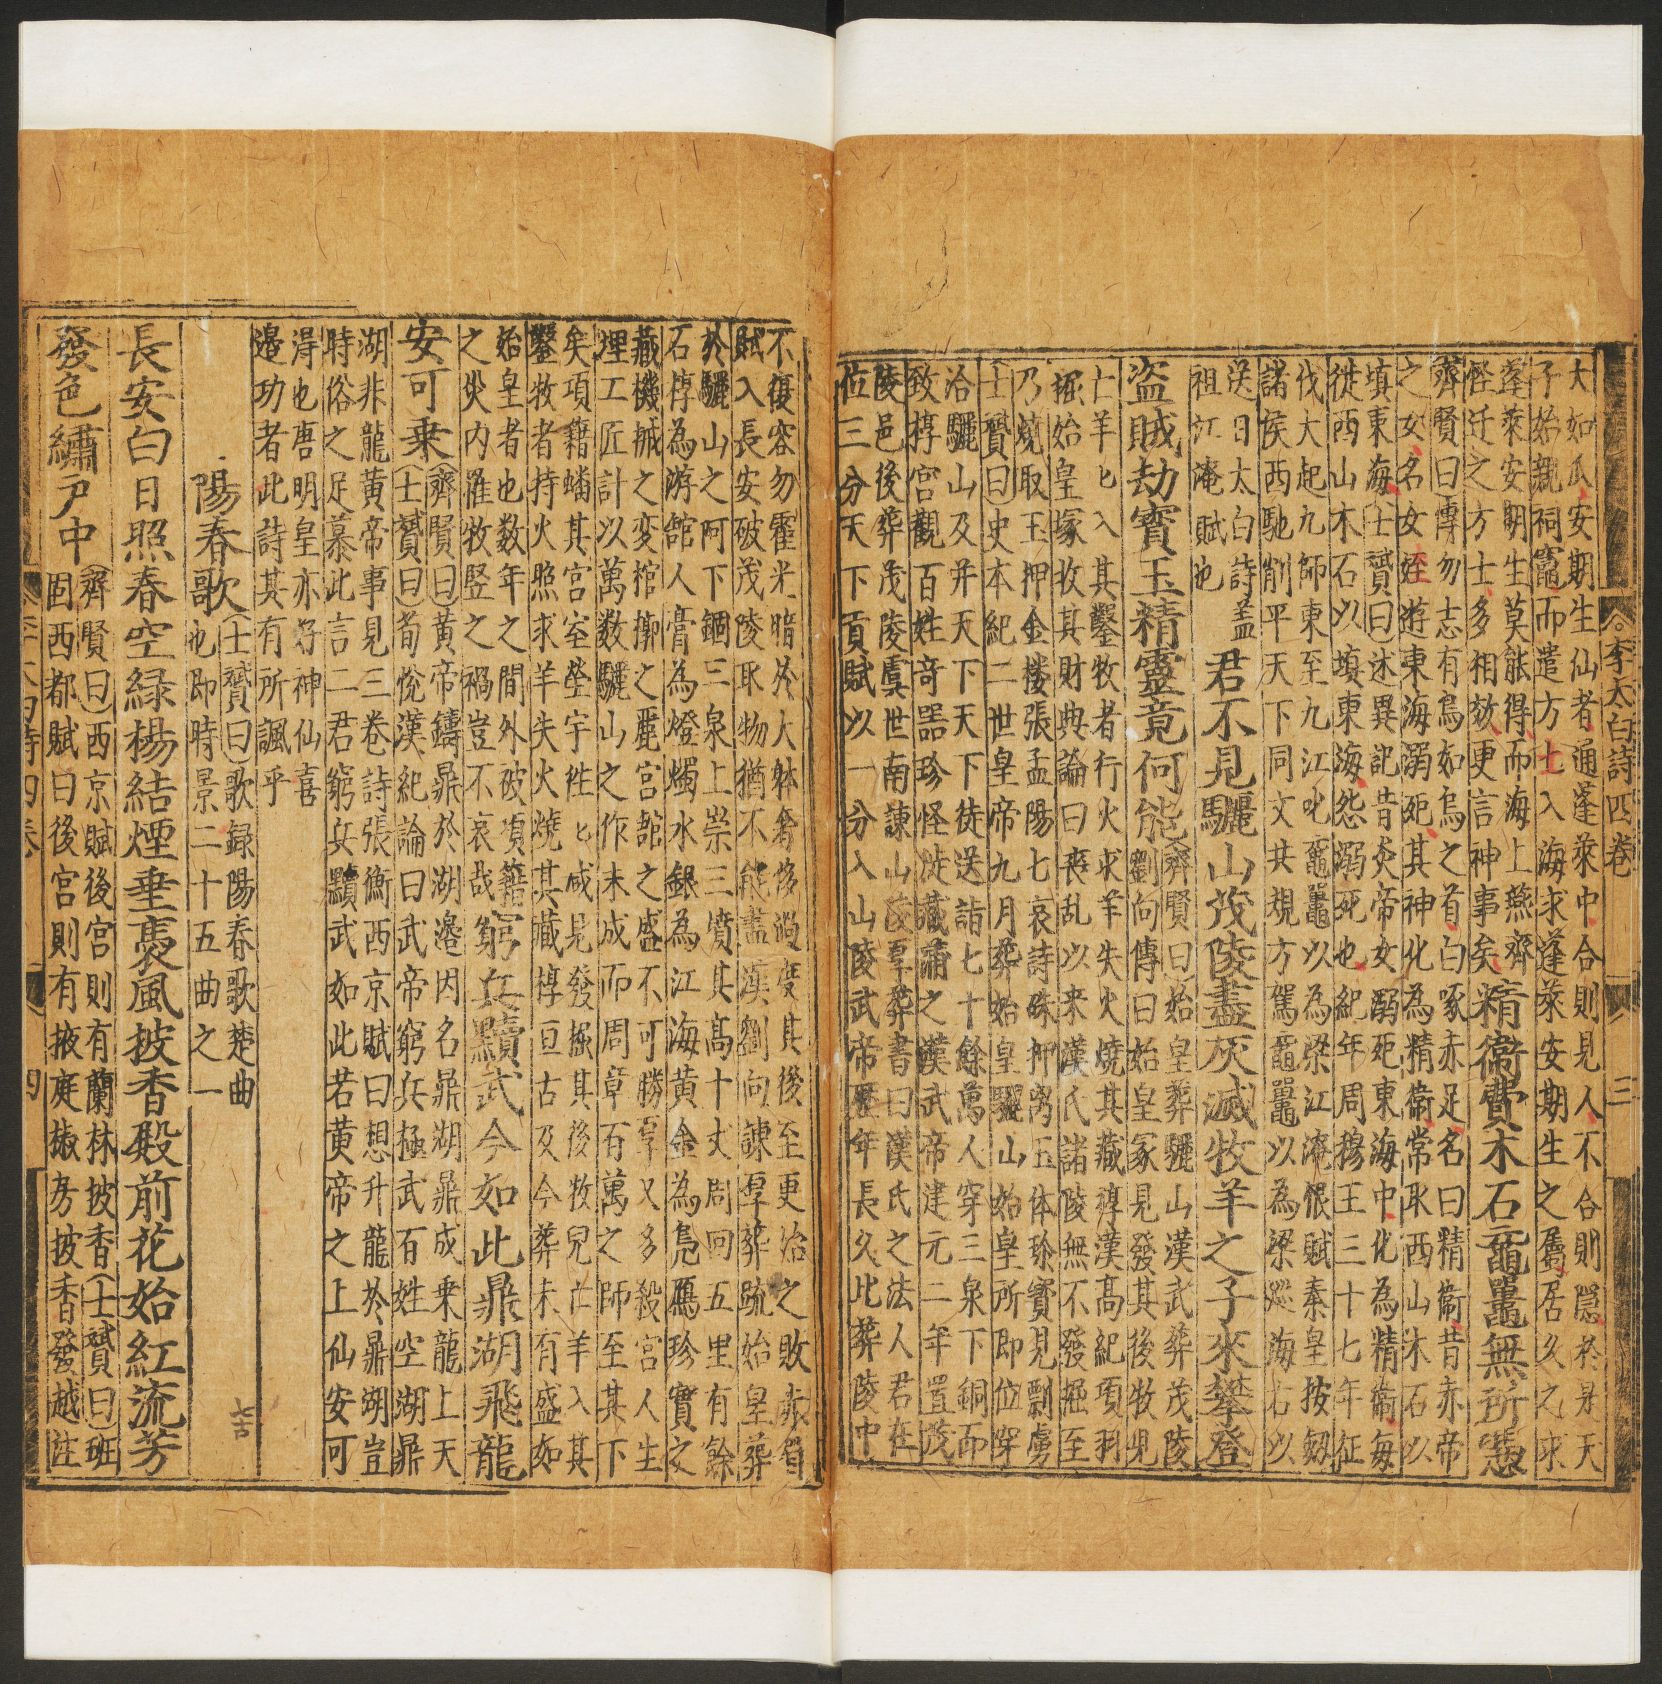 李太白詩四卷 三
大如瓜安期生仙者通蓬萊中合則見人不合則隱於是天
子始親祠竈而遣方士入海求蓬萊安期生之屬居久之求
蓬萊安期生莫能得而海上燕齊
怪迂之方士多相效更言神事矣
精衛費木石黿鼉無所憑
齊賢曰博物志有鳥如烏文首白喙赤足名曰精衛昔赤帝
之女名女娃遊東海溺死其神化為精衛常取西山木石以
填東海士贇曰述異記昔炎帝女溺死東海中化為精衛每
從西山木石以填東海怨溺死也紀年周穆王三十七年征
伐大起九師東至九江叱黿鼉以為梁江淹恨賦秦皇按劔
諸侯西馳削平天下同文共規方駕黿鼉以為梁巡海右以
送日太白詩蓋
祖江淹賦也
君不見驪山茂陵盡灰滅牧羊之子來攀登
盜賊劫寶玉精靈竟何能
齊賢曰始皇葬驪山漢武葬茂陵
劉向傳曰始皇冢見發其後牧兒
亡羊匕入其鑿牧者行火求羊失火燒其藏椁漢高紀項羽
掘始皇塚收其財典論曰喪乱以来漢氏諸陵無不發掘至
乃燒取玉押金楼張孟陽七哀詩珠押离玉体珍寳見剽虜
士贇曰史本紀二世皇帝九月葬始皇驪山始皇所即位穿
洽驪山及并天下天下徒送詣七十餘萬人穿三泉下銅而
致椁宮觀百姓竒噐珍怪徙藏蒲之漢武帝建元二年置茂
陵邑後葬茂陵虞世南諫山陵厚葬書曰漢氏之法人君在
位三分天下貢賦以一分入山陵武帝歷年長久此葬陵中
不復容物霍光暗於大躰奢侈過度其後至更始之敗赤眉
賦入長安破茂陵取物猶不能盡漢劉向諫厚葬疏始皇葬
於驪山之阿下錮三泉上崇三墳其髙十丈周回五里有餘
石椁為游舘人膏為燈燭水銀為江海黄金為鳬鴈珍寳之
藏機械之变棺槨之麗宮舘之盛不可勝宲又多殺宮人生
埋工匠計以萬数驪山之作未成而周章百萬之師至其下
矣項籍燔其宮室塋宇徃匕咸見發掘其後牧兒亡羊入其
鑿牧者持火照求羊失火燒其藏椁亘古及今葬未有盛如
始皇者也数年之間外被項籍
之災内罹牧竪之禍豈不哀哉
窮兵黷武今如此鼎湖飛龍
安可乗
齊賢曰黄帝鑄鼎於湖邉因名鼎湖鼎成乗龍上天
士贇曰荀悅漢紀論曰武帝窮兵極武百姓空湖鼎
湖非龍黄帝事見三卷詩張衡西京賦曰想升龍於鼎湖豈
時俗之足慕此言二君窮兵黷武如此若黄帝之上仙安可
淂也唐明皇亦好神仙喜
邉功者此詩其有所諷乎
陽春歌
士贇曰歌録陽春歌楚曲
也即時景二十五曲之一
七古
長安白日照春空緑楊結煙垂裊風披香殿前花始紅流芳
發色繡戸中
齊賢曰西京賦後宮則有蘭林披香士贇曰班
固西都賦曰後宮則有掖庭椒房披香發越註
李太白詩四卷 四